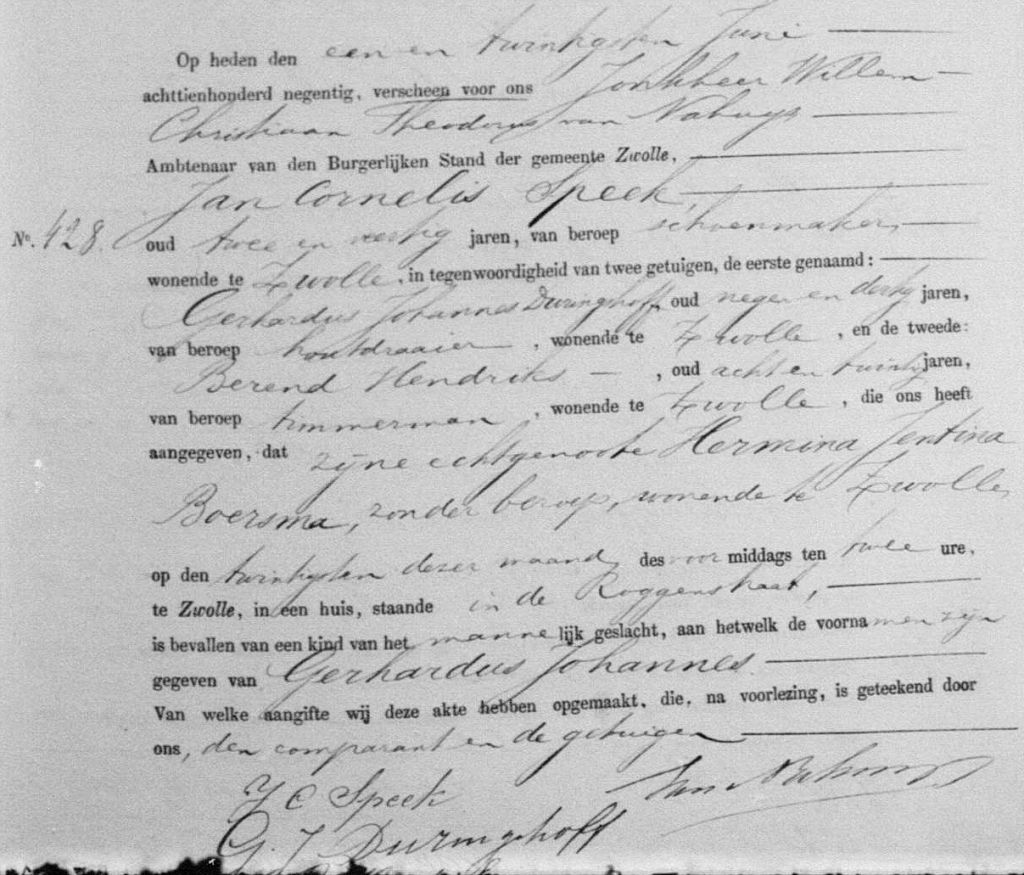 Op heden den een en twintigsten Juni
achttienhonderd negentig, verscheen voor ons Jonkheer Willem
Christiaan Theodorus van Nahuys
Ambtenaar van den Burgerlijken Stand der gemeente Zwolle,
Jan Cornelis Speek,
No. 428.
oud twee en veertig jaren, van beroep schoenmaker,
wonende te Zwolle, in tegenwoordigheid van twee getuigen, de eerste genaamd:
Gerhardus Johannes Duringhoff, oud negen en dertig jaren,
van beroep houtdraaier, wonende te Zwolle, en de tweede:
Berend Hendriks, oud acht en twintig jaren,
van beroep timmerman, wonende te Zwolle, die ons heeft
aangegeven, dat zijne echtgenoote Hermina Jentina
Boersma, zonder beroep, wonende te Zwolle,
op den twintigsten dezer maand, des voor middags ten twee ure,
te Zwolle, in een huis, staande in de Roggenstraat,
is bevallen van een kind van het mannelijk geslacht, aan hetwelk de voornamen zijn
gegeven van Gerhardus Johannes.
Van welke aangifte wij deze akte hebben opgemaakt, die, na voorlezing, is geteekend door
ons, den comparant en de getuigen
J C Speek
G. J Duringhoff